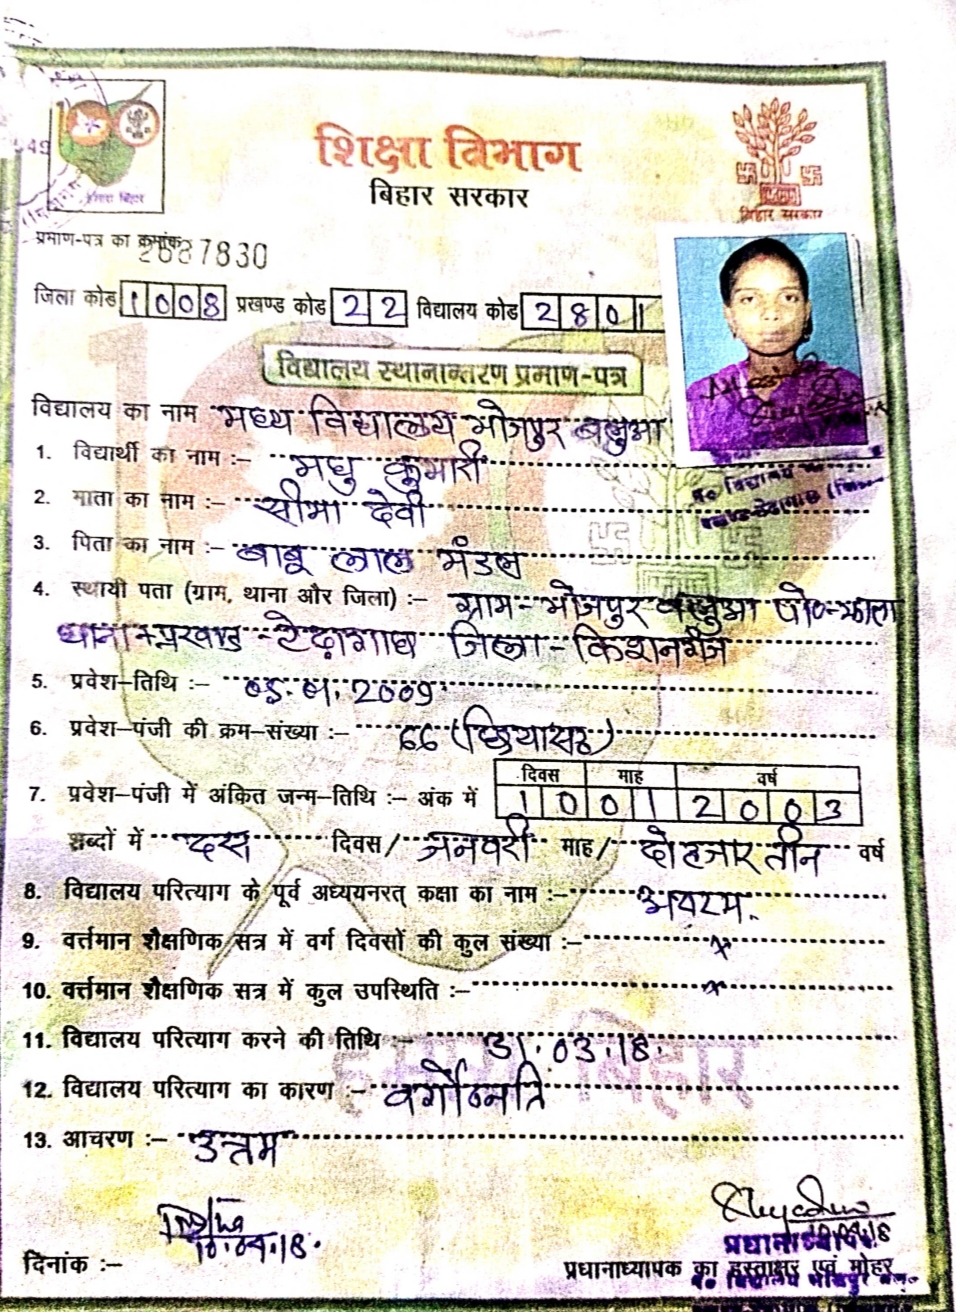 शिक्षा विभाग
बिहार सरकार
बिहार सरकार
प्रमाण-पत्र का क्रमांक 2687830
जिला कोड 1008 प्रखण्ड कोड 22 विद्यालय कोड 2801
विद्यालय स्थानान्तरण प्रमाण-पत्र
विद्यालय का नाम मध्य विद्यालय भोजपुर
1. विद्यार्थी का नाम :- मधु कुमारी
2. माता का नाम :- सीमा देवी
3. पिता का नाम :- बाबू लाल मंडल
4. स्थायी पता (ग्राम, थाना और जिला) :- ग्राम-भोजपुर पो०-झाला
थाना+प्रखण्ड-टेढ़ागाछ जिला-किशनगंज
5. प्रवेश-तिथि :- 2009
6. प्रवेश-पंजी की क्रम-संख्या :- ६६ (छियासठ)
7. प्रवेश-पंजी में अंकित जन्म-तिथि :- अंक में दिवस माह वर्ष
10 01 2003
शब्दों में दस दिवस/ जनवरी माह/ दो हजार तीन वर्ष
8. विद्यालय परित्याग के पूर्व अध्ययनरत् कक्षा का नाम :- अष्टम.
9. वर्त्तमान शैक्षणिक सत्र में वर्ग दिवसों की कुल संख्या :- x
10. वर्त्तमान शैक्षणिक सत्र में कुल उपस्थिति :- x
11. विद्यालय परित्याग करने की तिथि :- 31.03.18.
12. विद्यालय परित्याग का कारण :- वर्गोन्नति
13. आचरण :- उत्तम
10.04.18.
प्रधानाध्यापक
दिनांक :-
प्रधानाध्यापक का हस्ताक्षर एवं मोहर